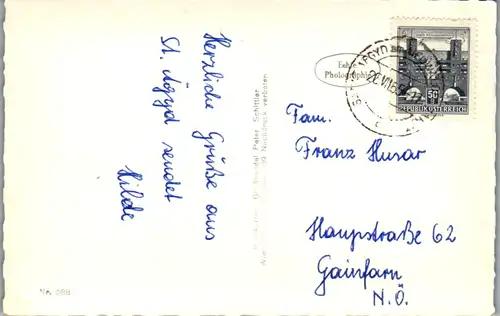 Herzliche Grüße aus
St. Aegyd sendet
Hilde
Echte
Photographie
50
REPUBLIK ÖSTERREICH
Fam.
Franz Husar
Hauptstraße 62
Gainfarn
N.Ö.
Peter Schittler
Nachdruck verboten
Nr. 088